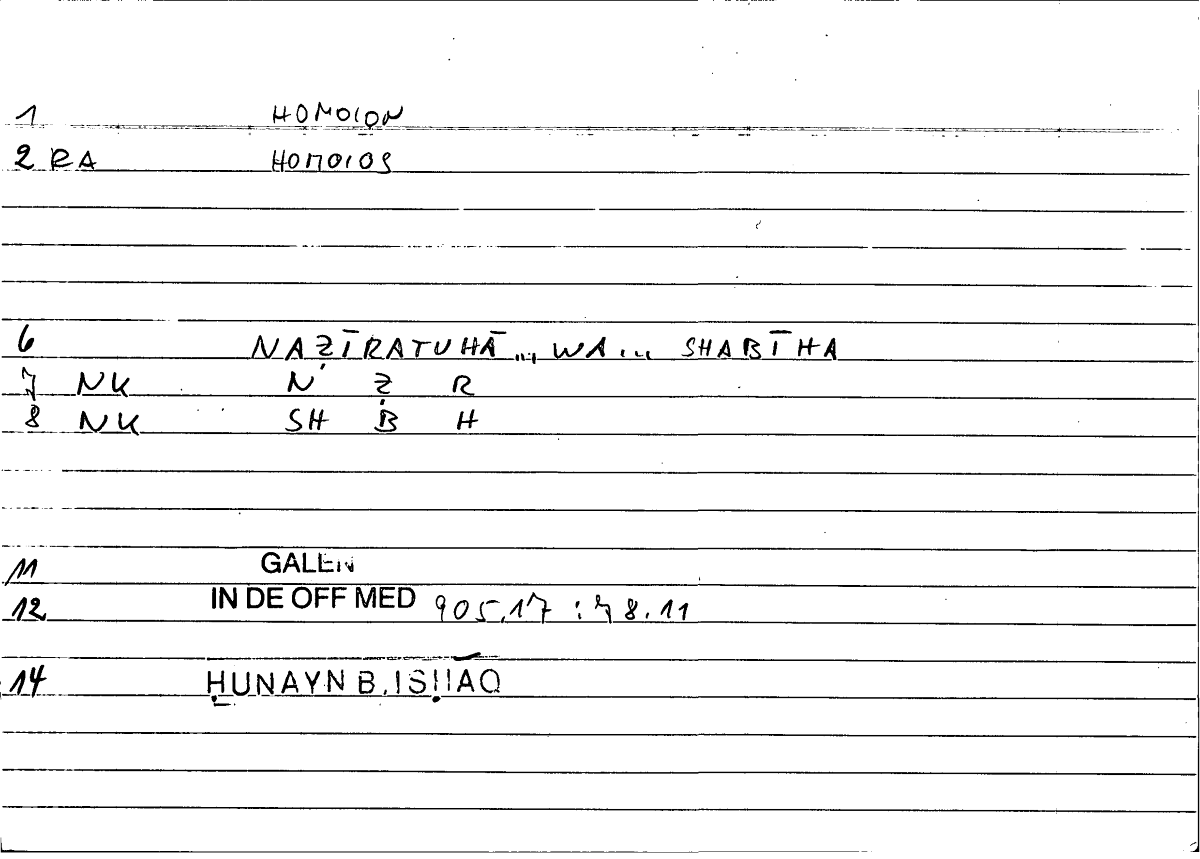 1 HOMOION
2 RA HOMOIOS
6 NAẒĪRATUHĀ ... WA ... SHABĪHA
7 NK N Ẓ R
8 NK SH B H
11 GALEN
12 IN DE OFF MED 905.17 : 78.11
14 ḤUNAYN B. ISḤĀQ